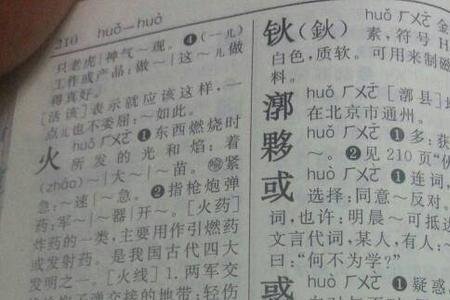 210 huǒ—huò
只老虎|神气~现。❹(一儿)
工作或产品:做~|这~儿做
得真好。
[活该]表示就应该这样,一
点儿也不委屈:~如此。
火 huǒ ㄏㄨㄛˇ ❶东西燃烧时
所发的光和焰:着
(zháo)~|大~|~苗。 紧
急:~速|~急。❷指枪炮弹
药:军~|~器|开~。[火药]
炸药的一类,主要用作引燃药
或发射药。是我国古代四大
发明之一。[火线]1.两军交
弹交接的地带:轻伤
钬(鈥) huǒ ㄏㄨㄛˇ 金
素,符号H
白色,质软。可用来制磁
料。
漷 huǒ ㄏㄨㄛˇ [漷县]
在北京市通州。
夥 huǒ ㄏㄨㄛˇ ❶多:获
~。❷见210页“伙
或 huò ㄏㄨㄛˋ ❶连词,
选择:同意~反对。
词,也许:明晨~可抵达
文言代词,某人,有人:~
曰:“何不为学?”
惑 huò ㄏㄨㄛˋ ❶疑惑